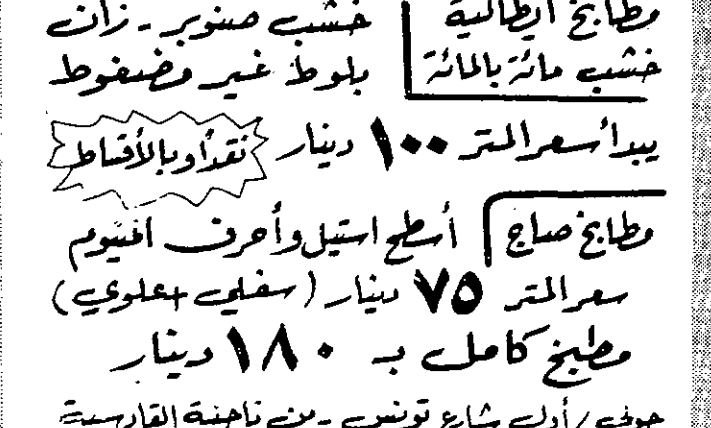 مطابخ ايطالية خشب صنوبر - زان
خشب مائة بالمائة بلوط غير مضغوط
يبدأ سعر المتر ١٠٠ دينار نقداً وبالأقساط
مطابخ صاج أسطح استيل وأحرف المنيوم
سعر المتر ٧٥ دينار (سفلي + علوي)
مطبخ كامل بـ ١٨٠ دينار
حولي / أول شارع تونس - من ناحية القادسية